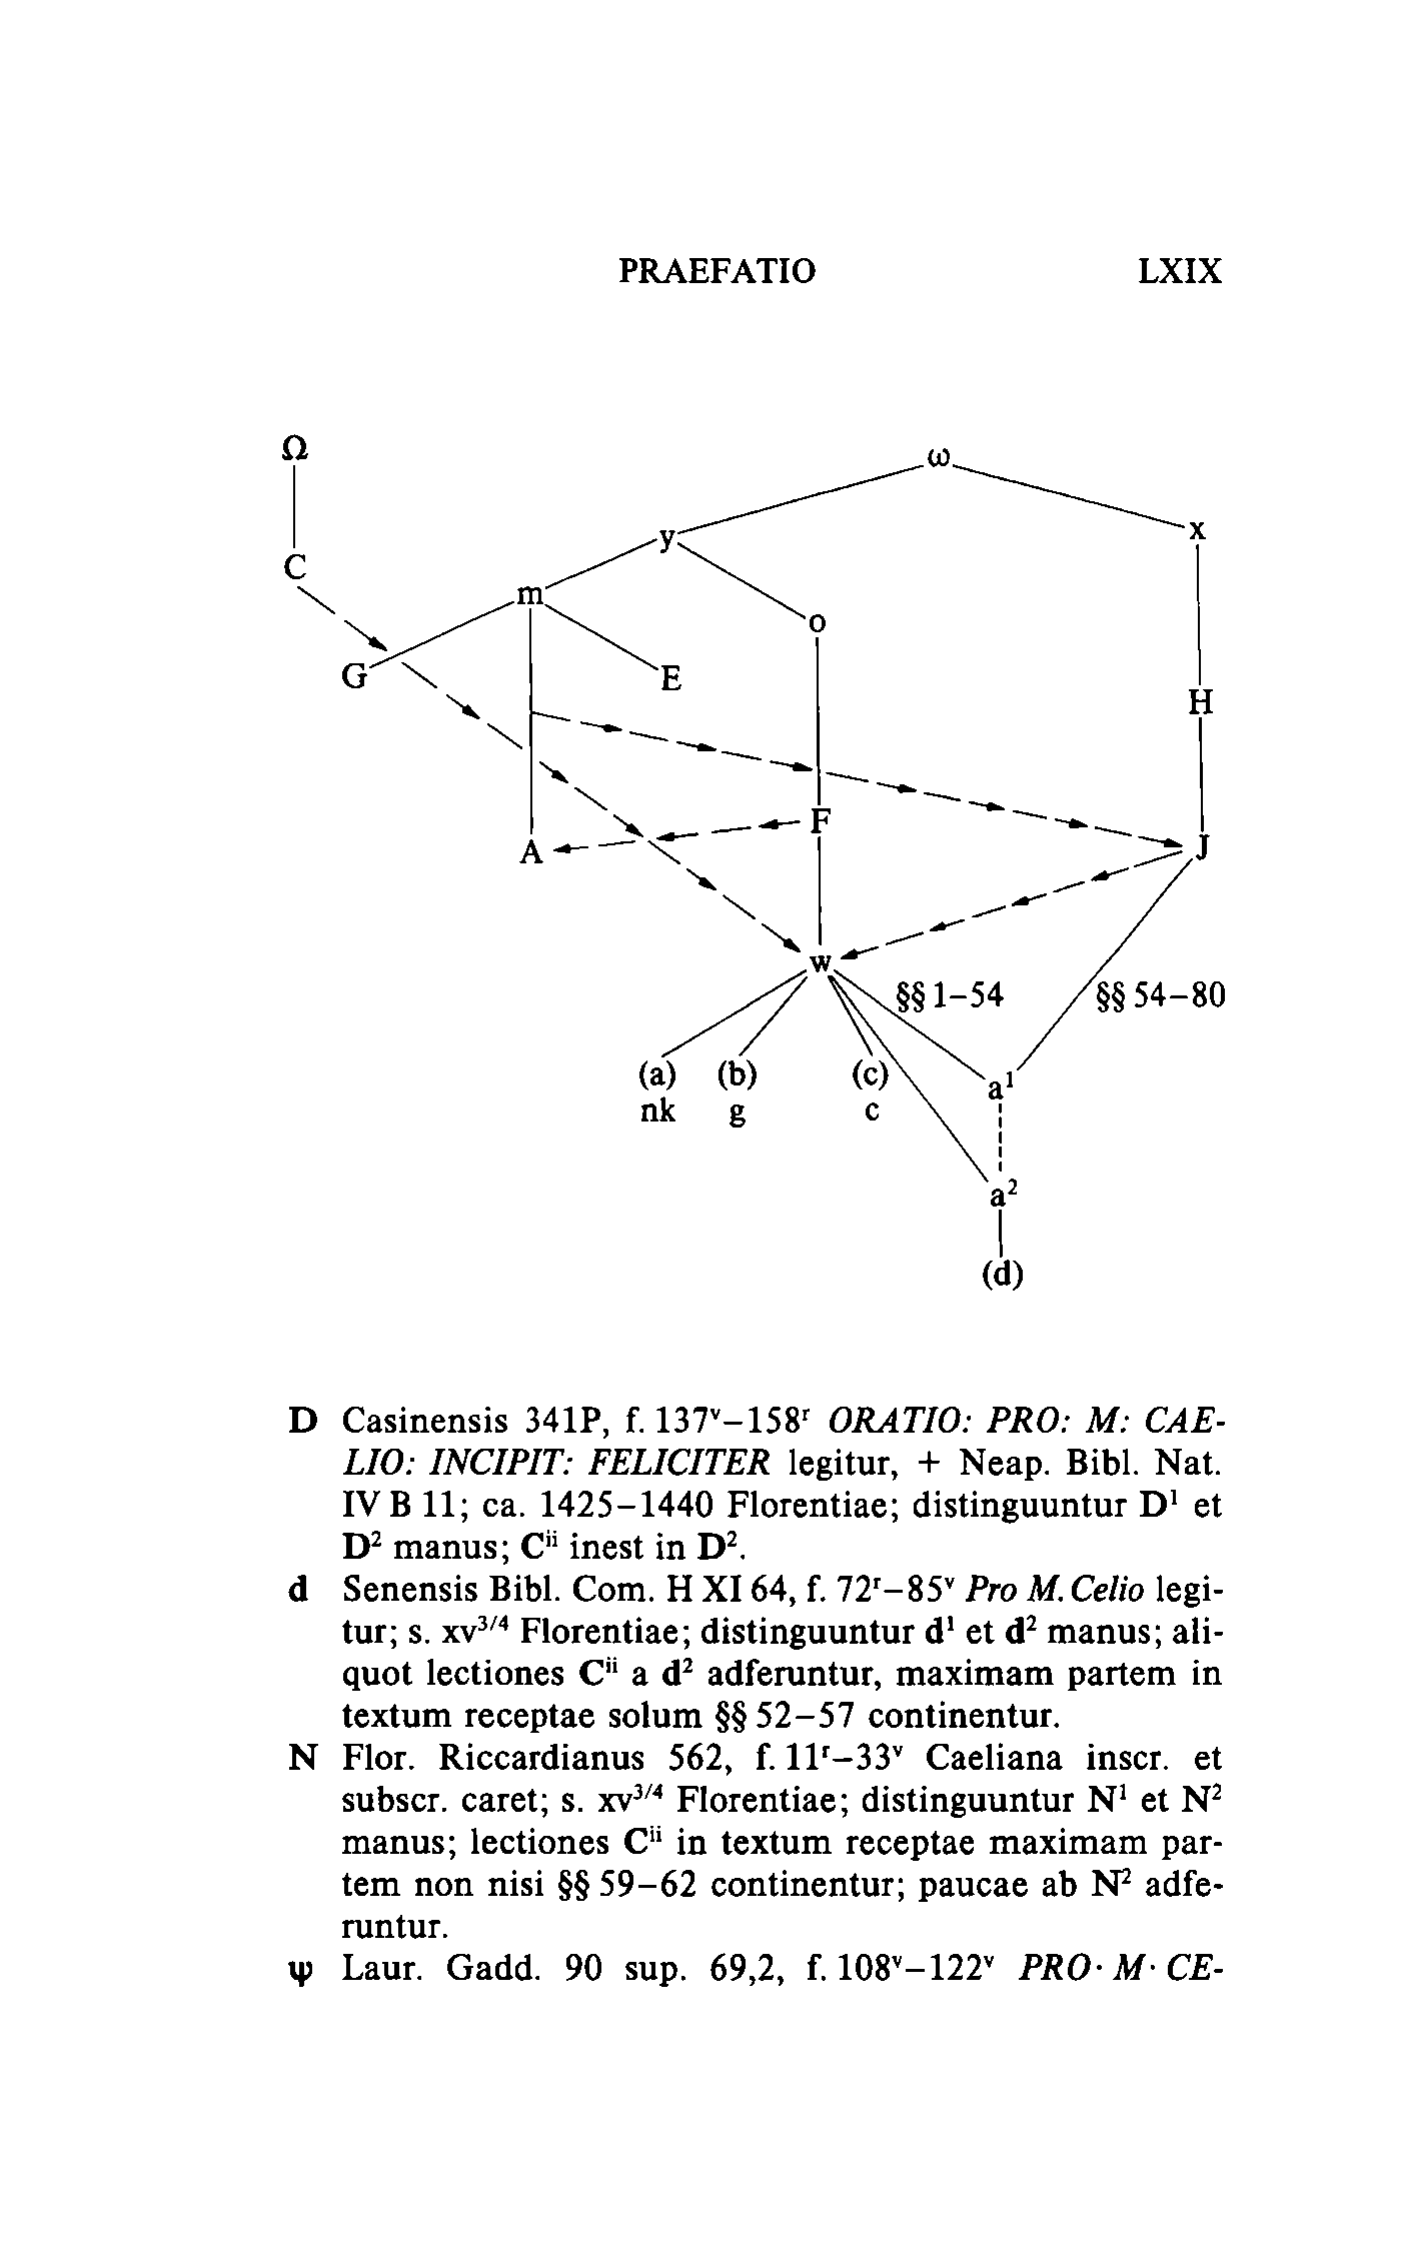 PRAEFATIO LXIX
Ω ω
y x
C
m
o
G E
H
F
A J
w
§§ 1–54 §§ 54–80
(a) (b) (c) a¹
nk g c
a²
(d)
D Casinensis 341P, f. 137ᵛ–158ʳ ORATIO: PRO: M: CAE-
LIO: INCIPIT: FELICITER legitur, + Neap. Bibl. Nat.
IV B 11; ca. 1425–1440 Florentiae; distinguuntur D¹ et
D² manus; Cⁱⁱ inest in D².
d Senensis Bibl. Com. H XI 64, f. 72ʳ–85ᵛ Pro M. Celio legi-
tur; s. xv³/⁴ Florentiae; distinguuntur d¹ et d² manus; ali-
quot lectiones Cⁱⁱ a d² adferuntur, maximam partem in
textum receptae solum §§ 52–57 continentur.
N Flor. Riccardianus 562, f. 11ʳ–33ᵛ Caeliana inscr. et
subscr. caret; s. xv³/⁴ Florentiae; distinguuntur N¹ et N²
manus; lectiones Cⁱⁱ in textum receptae maximam par-
tem non nisi §§ 59–62 continentur; paucae ab N² adfe-
runtur.
ψ Laur. Gadd. 90 sup. 69,2, f. 108ᵛ–122ᵛ PRO· M· CE-